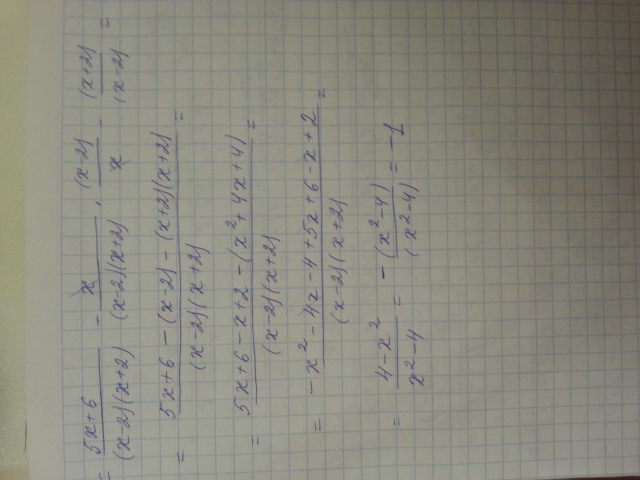 = (5x+6)/((x-2)(x+2)) - x/((x-2)(x+2)) · (x-2)/x - (x+2)/(x-2) =
= (5x+6-(x-2)-(x+2)(x+2))/((x-2)(x+2)) =
= (5x+6-x+2-(x²+4x+4))/((x-2)(x+2)) =
= (-x²-4x-4+5x+6-x+2)/((x-2)(x+2)) =
= (4-x²)/(x²-4) = -(x²-4)/(x²-4) = -1